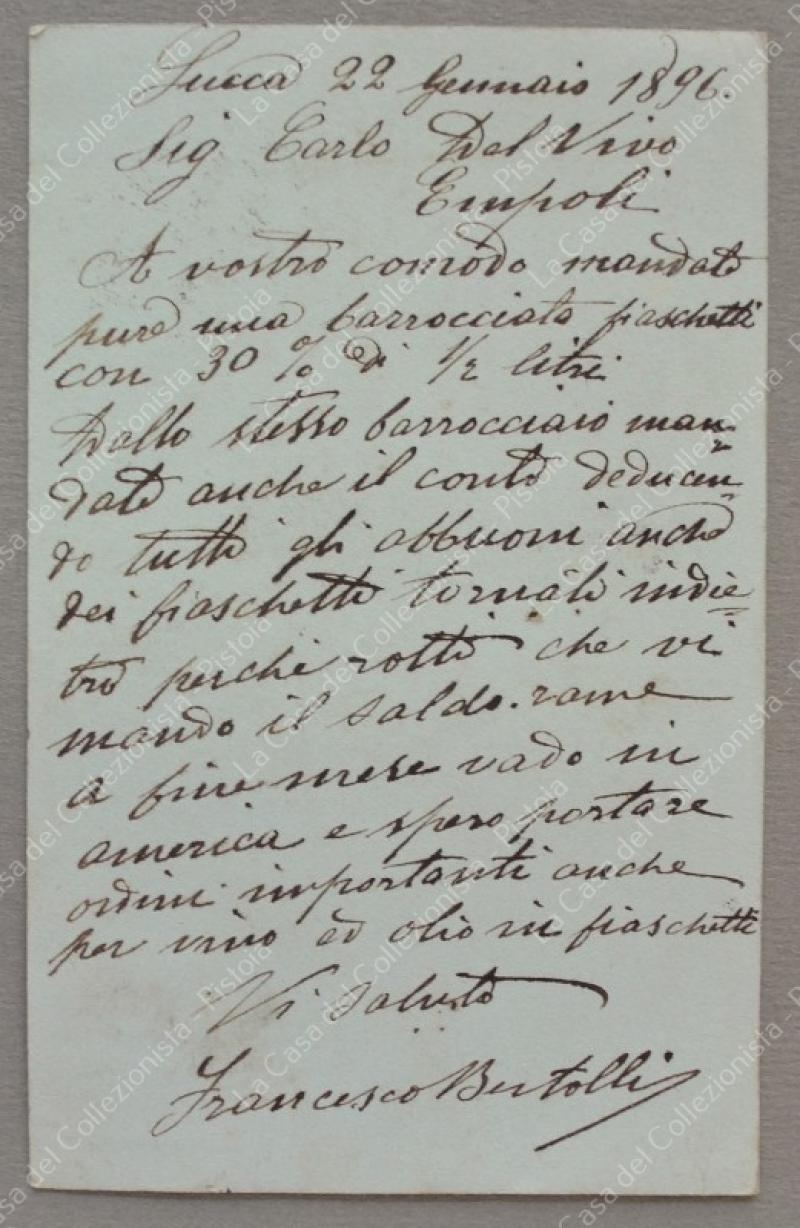 Lucca 22 Gennaio 1896.
Sig Carlo Del Vivo
Empoli
A vostro comodo mandate
pure una barrocciata fiaschetti
con 30 % di 1/2 litri
Dallo stesso barrocciaio man=
date anche il conto deducen=
do tutti gli abbuoni anche
dei fiaschetti tornati indie=
tro perchè rotti che vi
mando il saldo. rame
a fine mese vado in
america e spero portare
ordini importanti anche
per vino ed olio in fiaschetti
Vi saluto
Francesco Bertolli
La Casa del Collezionista - Pistoia